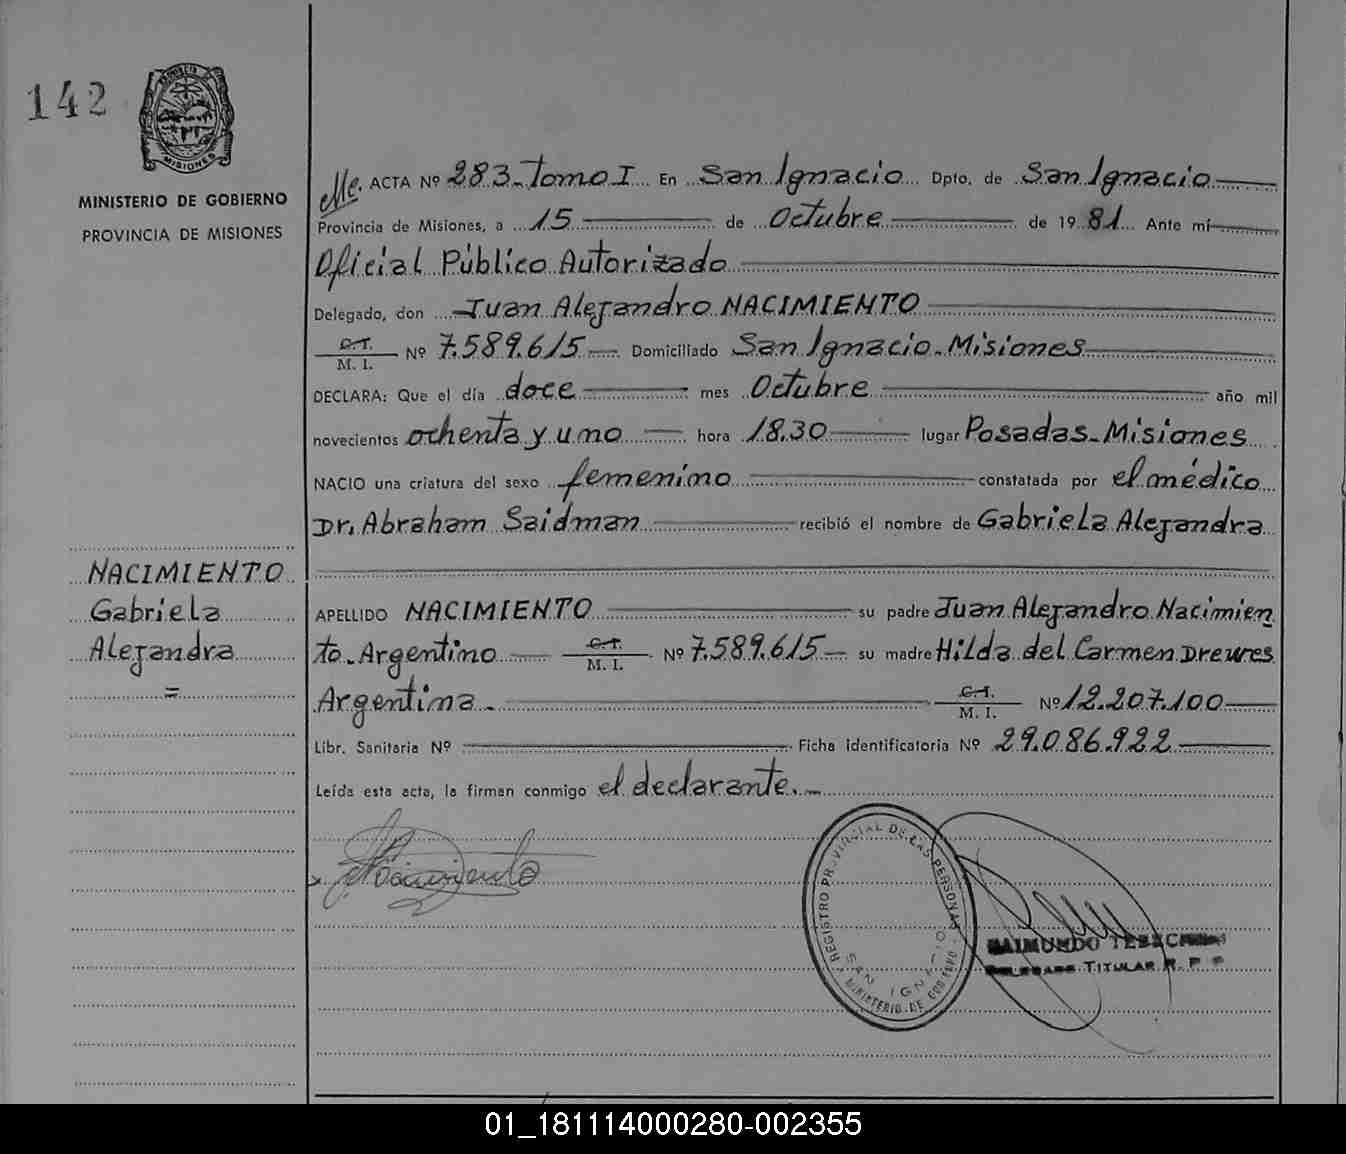 142
MISIONES
MINISTERIO DE GOBIERNO
PROVINCIA DE MISIONES
ACTA Nº 283 - Tomo I En San Ignacio Dpto. de San Ignacio
Provincia de Misiones, a 15 de Octubre de 1981 Ante mí
Oficial Público Autorizado
Delegado, don Juan Alejandro NACIMIENTO
C.I. M. I. Nº 7.589.615 Domiciliado San Ignacio - Misiones
DECLARA: Que el día doce mes Octubre año mil
novecientos ochenta y uno hora 18.30 lugar Posadas - Misiones
NACIO una criatura del sexo femenino constatada por el médico
Dr. Abraham Saidman recibió el nombre de Gabriela Alejandra
NACIMIENTO
Gabriela
Alejandra
=
APELLIDO NACIMIENTO su padre Juan Alejandro Nacimien
to - Argentino C.I. M. I. Nº 7.589.615 su madre Hilda del Carmen Drewes
Argentina - C.I. M. I. Nº 12.207.100
Libr. Sanitaria Nº Ficha identificatoria Nº 29.086.922
Leída esta acta, la firman conmigo el declarante.-
Nacimiento
REGISTRO PROVINCIAL DE LAS PERSONAS
SAN IGNACIO
MINISTERIO DE GOBIERNO
RAIMUNDO
TITULAR R. P. P
01_181114000280-002355